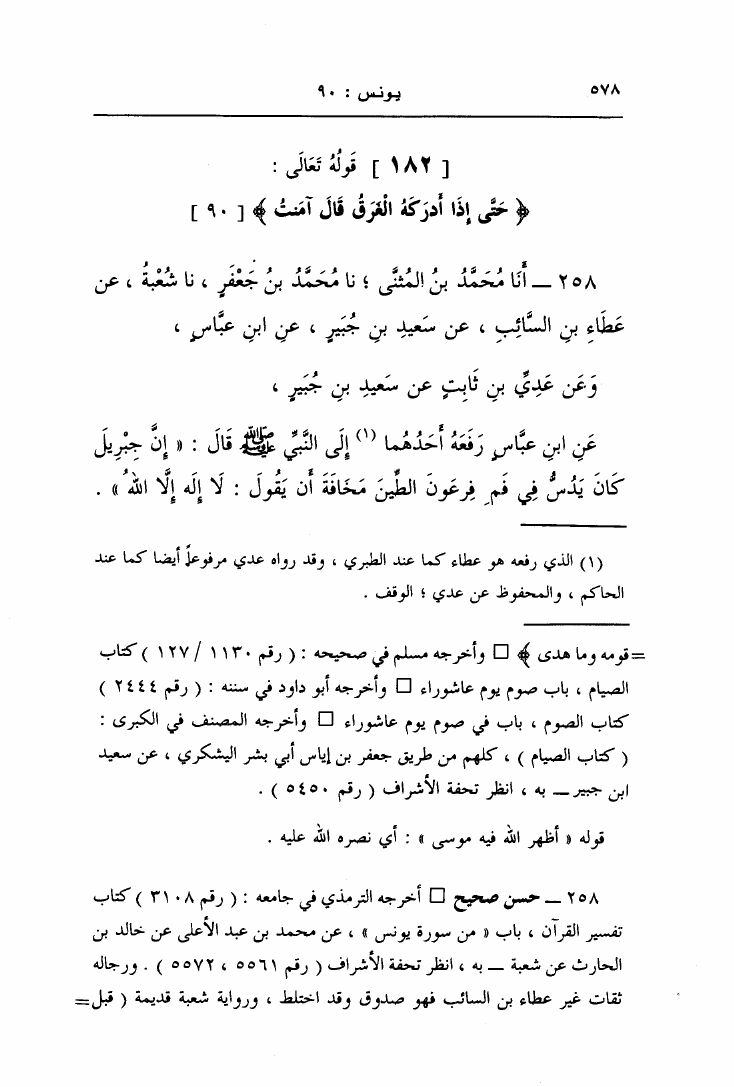 ٥٧٨ يونس : ٩٠
[ ١٨٢ ] قَولُهُ تَعَالَى :
﴿ حَتَّى إِذَا أَدرَكَهُ الْغَرَقُ قَالَ آمَنتُ ﴾ [ ٩٠ ]
٢٥٨ ــ أَنَا مُحَمَّدُ بنُ المُثنَّى ؛ نا مُحَمَّدُ بنُ جَعْفَرٍ ، نا شُعْبَةُ ، عن
عَطَاءِ بنِ السَّائِبِ ، عن سَعيدِ بنِ جُبَيرٍ ، عنِ ابنِ عبَّاسٍ ،
وَعَن عَدِيِّ بنِ ثَابِتٍ عن سَعيدِ بنِ جُبَيرٍ ،
عَنِ ابنِ عبَّاسٍ رَفَعَهُ أَحَدُهُما (١) إِلَى النَّبِيِّ ﷺ قَالَ : « إِنَّ جِبْرِيلَ
كَانَ يَدُسُّ فِي فَمِ فِرعَونَ الطِّينَ مَخَافَةَ أَن يَقُولَ : لَا إِلَه إِلَّا اللهُ » .
(١) الذي رفعه هو عطاء كما عند الطبري ، وقد رواه عدي مرفوعاً أيضا كما عند
الحاكم ، والمحفوظ عن عدي ؛ الوقف .
=قومه وما هدى ﴾ □ وأخرجه مسلم في صحيحه : ( رقم ١١٣٠ / ١٢٧ ) كتاب
الصيام ، باب صوم يوم عاشوراء □ وأخرجه أبو داود في سننه : ( رقم ٢٤٤٤ )
كتاب الصوم ، باب في صوم يوم عاشوراء □ وأخرجه المصنف في الكبرى :
( كتاب الصيام ) ، كلهم من طريق جعفر بن إياس أبي بشر اليشكري ، عن سعيد
ابن جبير ــ به ، انظر تحفة الأشراف ( رقم ٥٤٥٠ ) .
قوله « أظهر الله فيه موسى » : أي نصره الله عليه .
٢٥٨ ــ حسن صحيح □ أخرجه الترمذي في جامعه : ( رقم ٣١٠٨ ) كتاب
تفسير القرآن ، باب « من سورة يونس » ، عن محمد بن عبد الأعلى عن خالد بن
الحارث عن شعبة ــ به ، انظر تحفة الأشراف ( رقم ٥٥٦١ ، ٥٥٧٢ ) . ورجاله
ثقات غير عطاء بن السائب فهو صدوق وقد اختلط ، ورواية شعبة قديمة ( قبل=